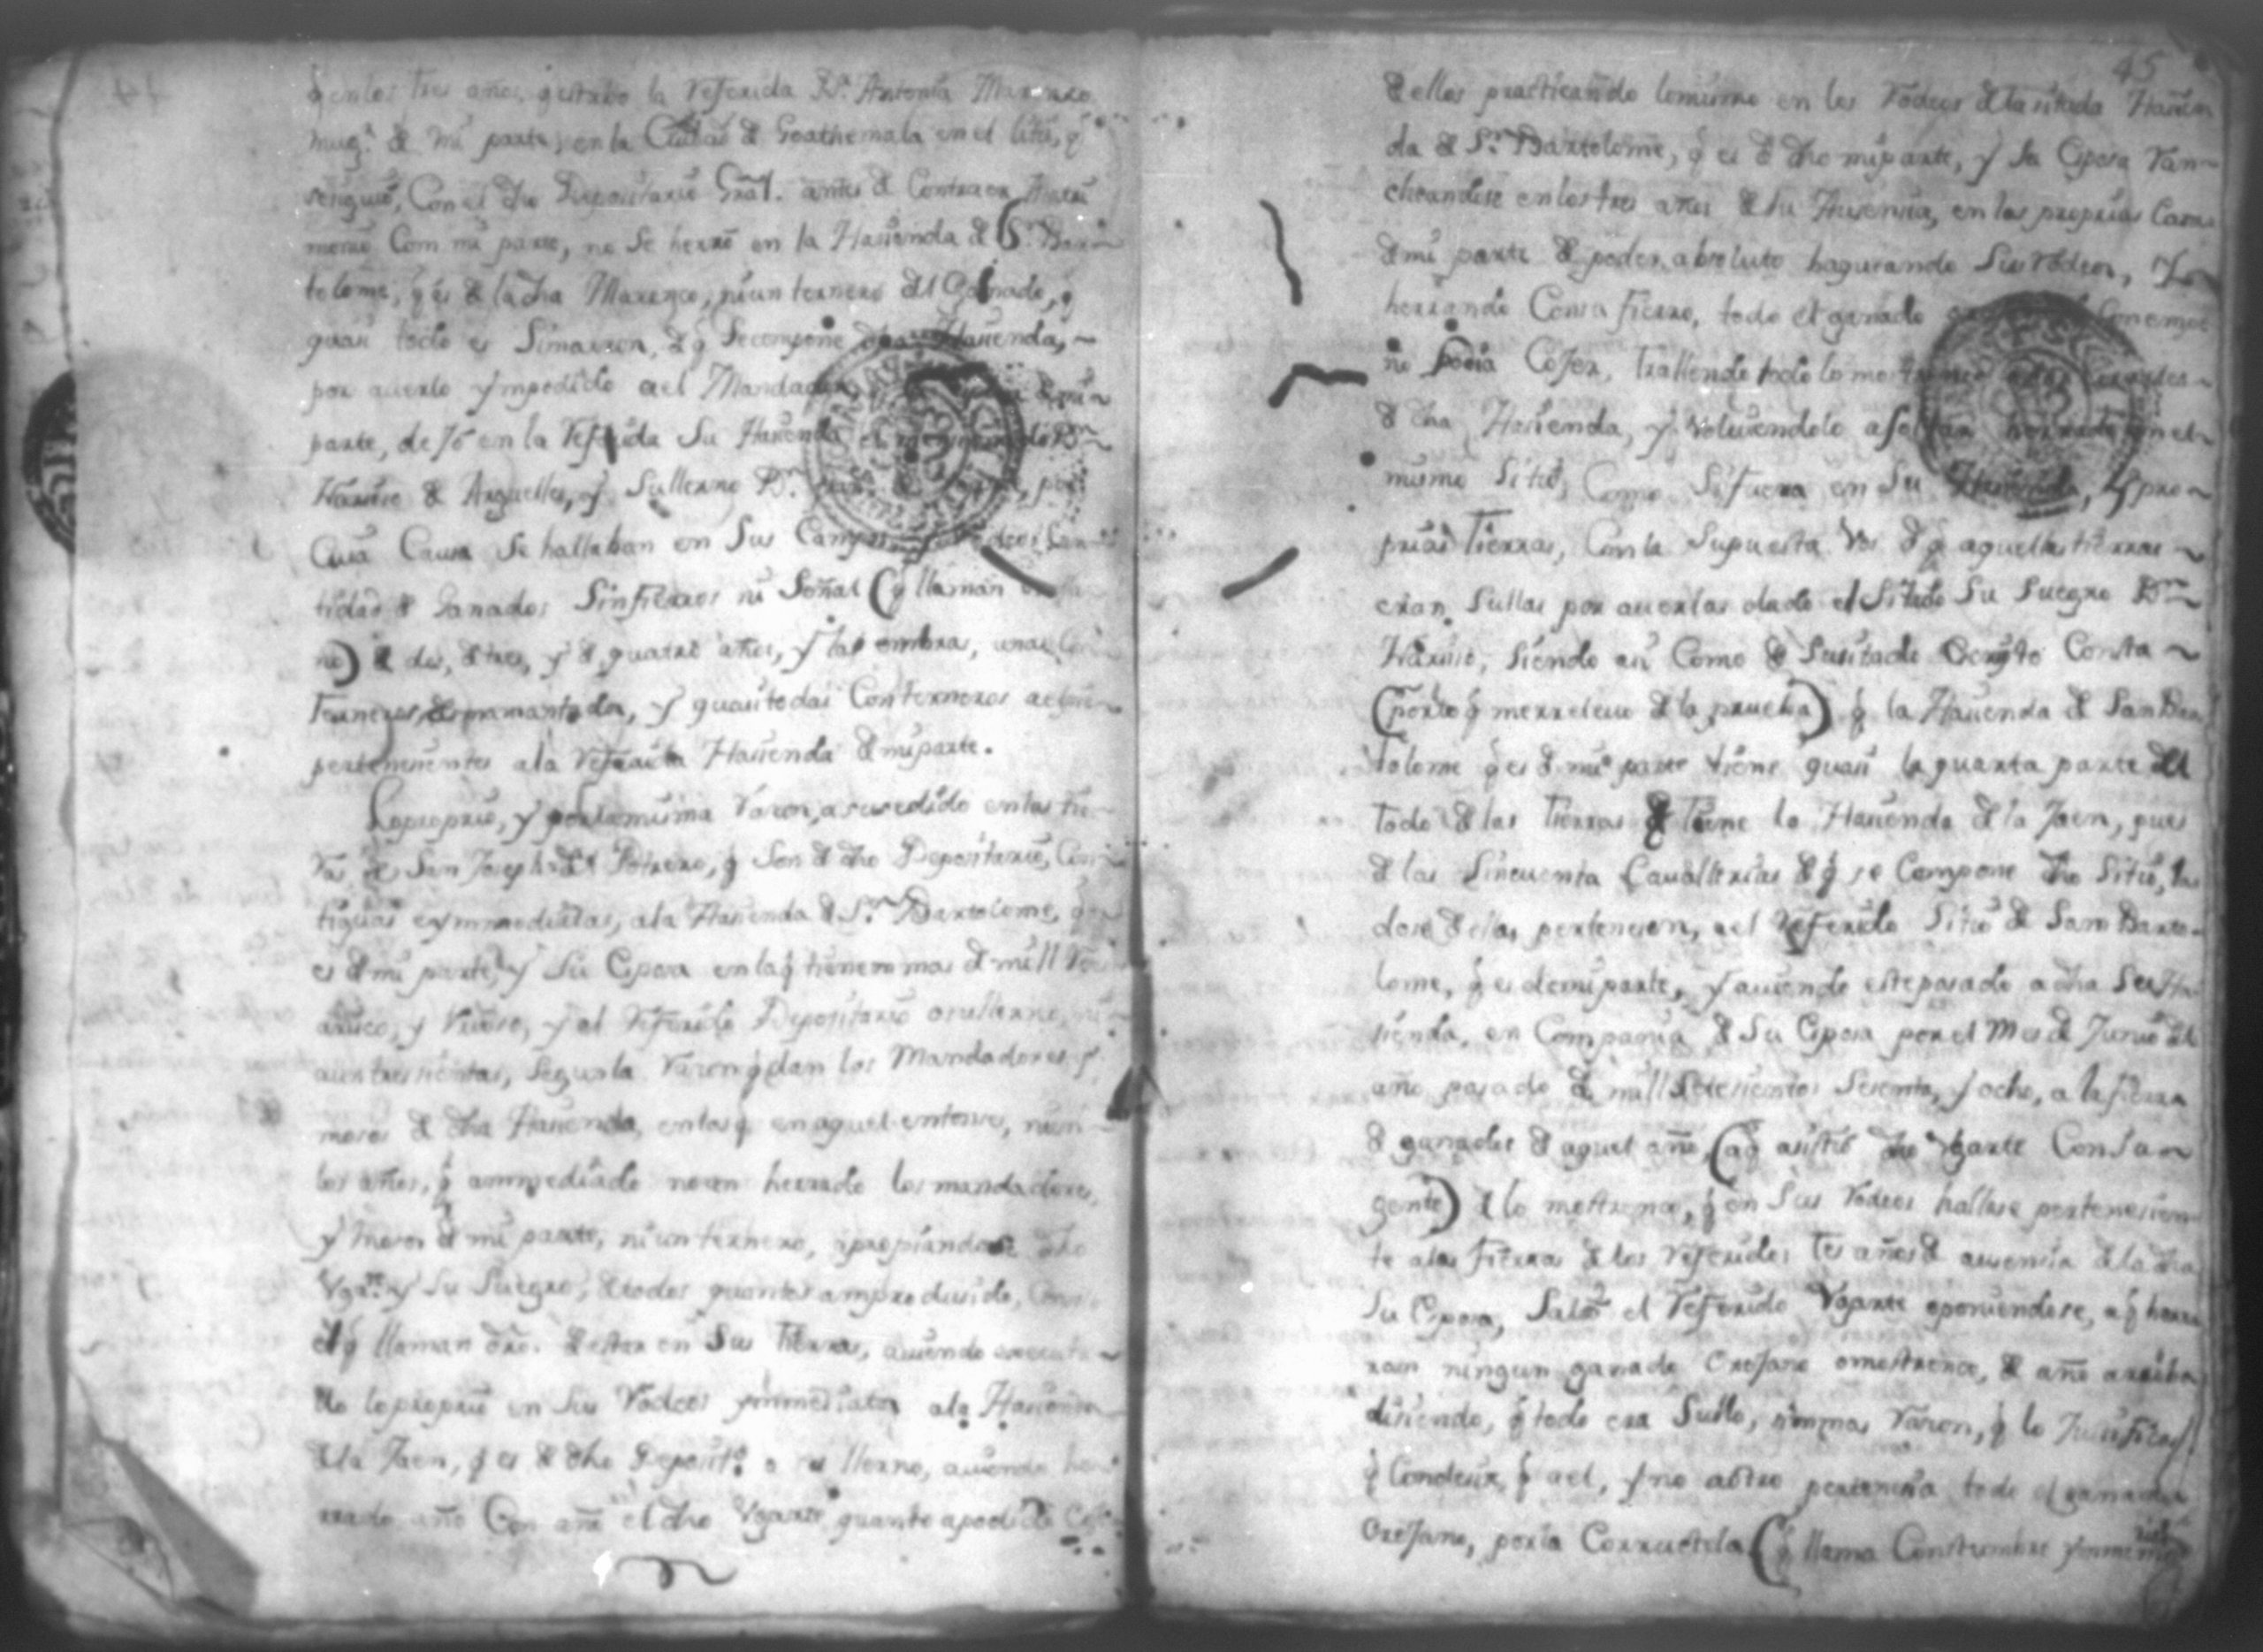 q̃ en los tres años, q̃ estubo la Referida Dª. Antonia Marenco
mugᵉʳ. de mi parte, en la Ciudad de Goathemala en el litis, q̃
siguio, Con el dho Depositario Gral. antes de Contraer Matri
monio Com mi parte, no se herró en la Hasienda de Sⁿ. Bar
tolome, q̃ es de la dha Marenco, ni un ternero del Ganado, q̃
quasi todo es Simarron, de q̃ se compone dha Hasienda,
por auerlo ympedido a el Mandador
parte, de 76 en la Referida su Hasienda el Dⁿ
Narsiso de Arguelles, y su llerno Dⁿ. por
Cuia Causa se hallaban en sus Campos, y Rodeos Can
tidad de Ganados Sin fierros ni Señal (q̃ llaman
no) de dos, de tres, y de quatro años, y las embras, unas Con
Terneros, desmamantados, y quasi todas Con terneros
pertenesientes a la Referida Hasienda de mi parte.
Lo proprio, y por la misma Raron, a susedido en las tie
rras de San Joseph del Potrero, q̃ Son de dho Depositario, Con
tiguas e ymmediatas, a la Hasienda de Sⁿ Bartolome, q̃
es de mi parte, y su Esposa en la q̃ tienen mas de mill
y al Referido Depositario o su llerno, ni
aun tresientas, segun la Raron q̃ dan los Mandadores y
mosos de dha Hasienda, en las q̃ en aquel entonses, ni en
los años, q̃ an mediado no an herrado los mandadores,
y mosos de mi parte, ni un ternero, apropiandose dho
Vgarᵗᵉ. y su Suegro, de todos quantos an produsido, Con
el q̃ llaman dro. de estar en sus Tierras, auiendo executa
do lo proprio en sus Rodeos ymmediatos a la Hasienda
de la Jaen, q̃ es de dho Deposit.º o su llerno, auiendo he
rrado año Con año el dho Vgarte quanto a podido Cojer
45
de ellos practicando lo mismo en los Rodeos de la sitada Hasien
da de Sⁿ. Bartolome, q̃ es de dho mi parte, y su Esposa Ran
cheandose en los tres años de su Ausensia, en las proprias Casas
de mi parte de poder absoluto haqueando sus Rodeos, y
herrando Con su fierro, todo el ganado
no podia Cojer, trallendo todo lo mostrenco a los
de dha Hasienda, y voluiendolo a soltar herrado en el
mismo sitio, Como si fuera en su Hasienda, y pro
prias Tierras, Con la supuesta Vos de q̃ aquellas tierras
eran sullas por auerlas dado el sitado su suegro Dⁿ
Narsiso, siendo asi Como de susitado Escrito Consta
(por lo q̃ me rreleuo de la prueba) q̃ la Hasienda de San Bar
tolome q̃ es de mi parte tiene quasi la quarta parte del
todo de las tierras q̃ tiene la Hasienda de la Jaen, pues
de las sincuenta Cauallerias de q̃ se Compone dho sitio, las
dose de ellas pertenesen, a el Referido Sitio de San Barto
lome, q̃ es de mi parte, y auiendo este pasado a dha su Ha
sienda, en Compania de su Esposa por el Mes de Junio del
año pasado de mill setesientos sesenta, y ocho, a la fierra
de ganados de aquel año, (a q̃ asistio dho Vgarte Con su
gente) de lo mostrenco, q̃ en sus Rodeos hallase pertenesien
te a las fierras de los Referidos tres años de ausensia de la dha
su Esposa, Salió el Referido Vgarte oponiendose, a q̃ herra
ran ningun ganado Orejano o mostrenco, de año arriba
disiendo, q̃ todo era Sullo, sin mas Raron, q̃ lo Justificas
q̃ Condesir, q̃ a el, y no a otro pertenesia todo el ganado
Orejano, por la Corructela (q̃ llama Constumbre ymmemo
rial